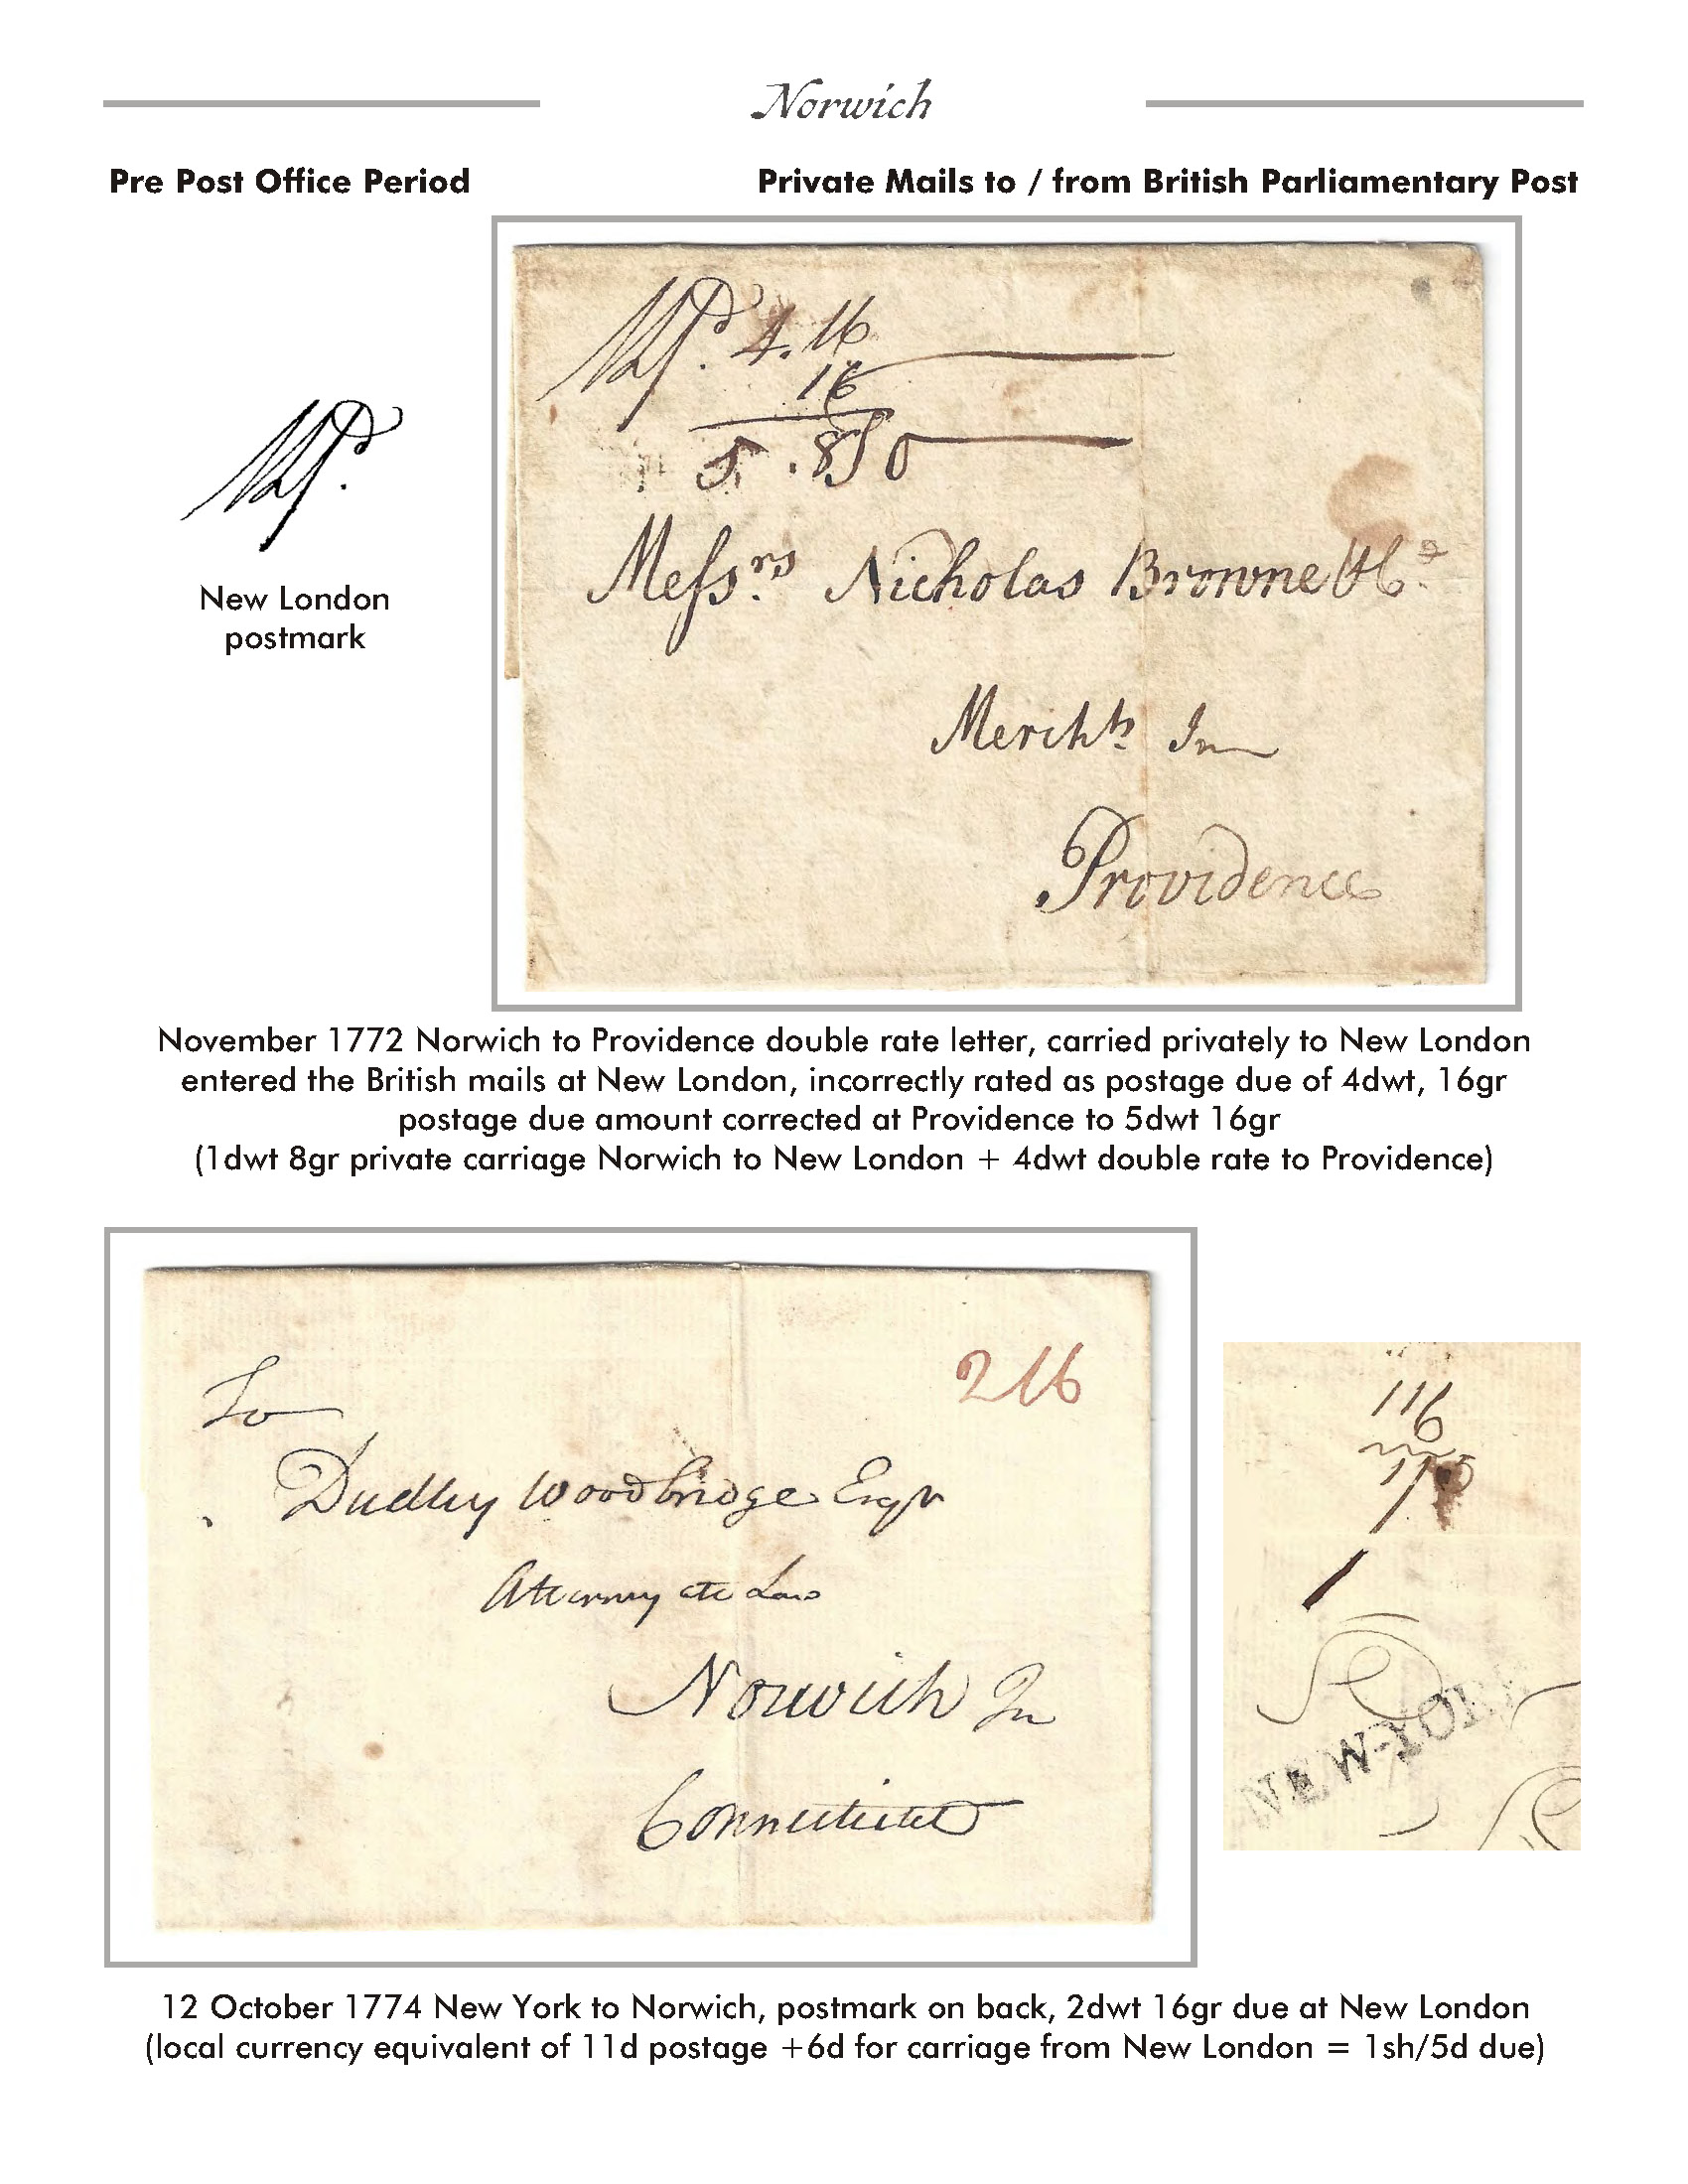 Norwich
Pre Post Office Period
Private Mails to / from British Parliamentary Post
4.16
16
5.8
Meſs.rs Nicholas Browne & Co
Merchts In
Providence
New London
postmark
November 1772 Norwich to Providence double rate letter, carried privately to New London
entered the British mails at New London, incorrectly rated as postage due of 4dwt, 16gr
postage due amount corrected at Providence to 5dwt 16gr
(1dwt 8gr private carriage Norwich to New London + 4dwt double rate to Providence)
216
To
Dudley Woodbridge Esqr
Attorney att Law
Norwich In
Connecticutt
116
NEW-YORK
12 October 1774 New York to Norwich, postmark on back, 2dwt 16gr due at New London
(local currency equivalent of 11d postage +6d for carriage from New London = 1sh/5d due)